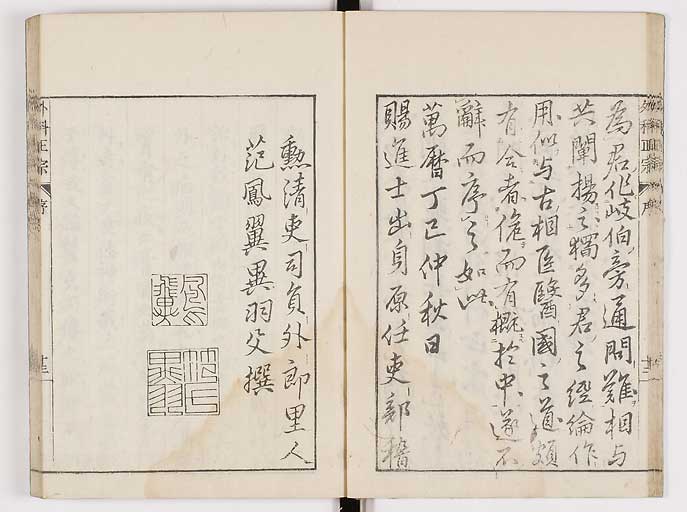 為君作岐伯旁通問難相与
共闡揚之獨多君之經綸作
用似与古相医醫國之道頗
有合者俛而有概於中遂不
辭而序之如此
萬曆丁巳仲秋日
賜進士出身原任吏部稽
勲清吏司員外郎里人
范鳳翼異羽父撰
外科正宗
序
外科正宗
序